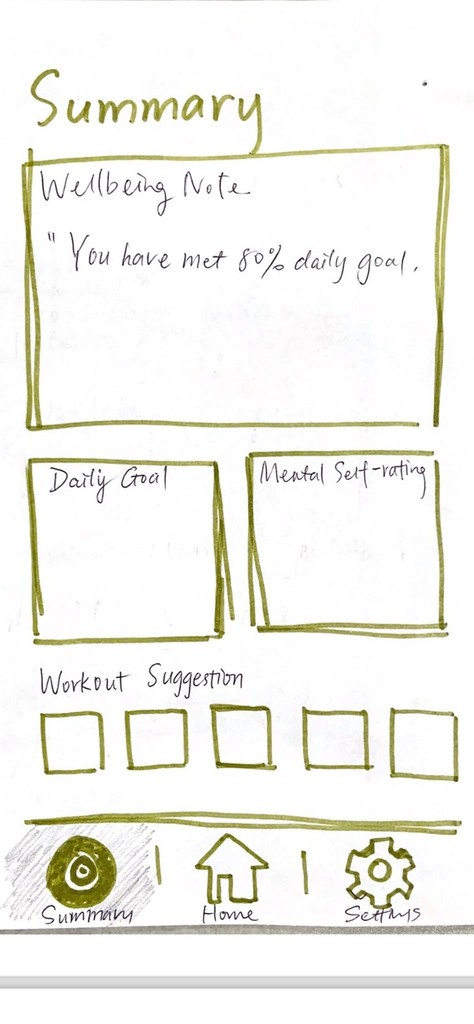 Summary
Wellbeing Note
" You have met 80% daily goal.
Daily Goal
Mental Self-rating
Workout Suggestion
Summary
Home
Settings